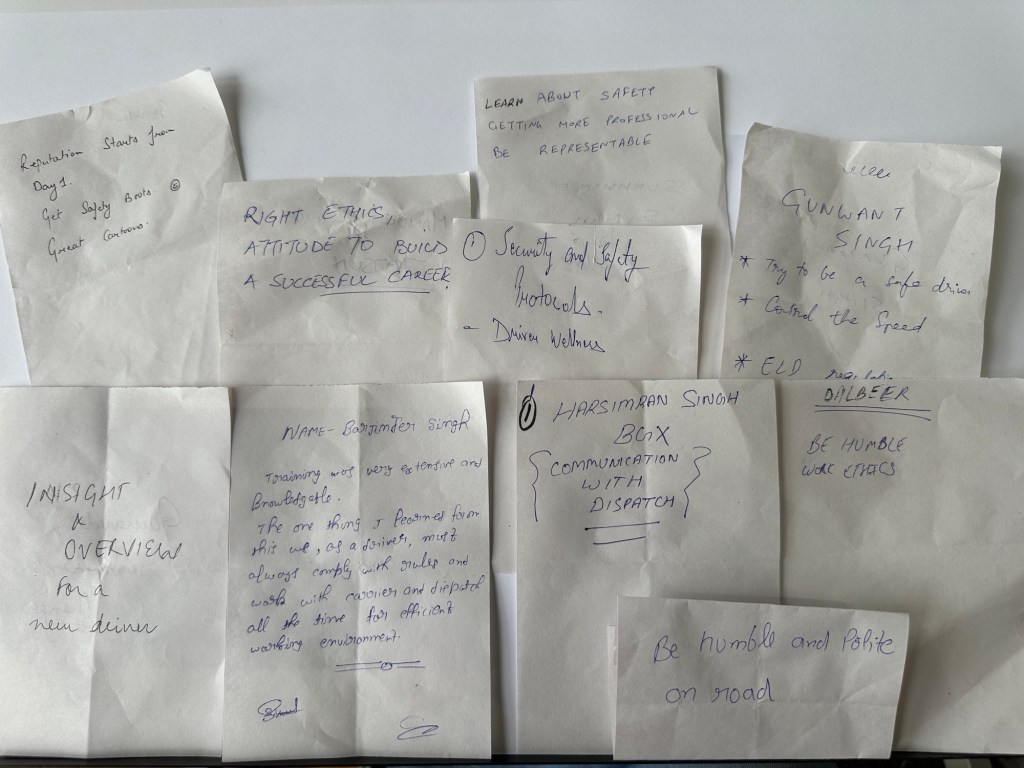 Reputation Starts from
Day 1.
Get Safety Boots
Great Cartoons.
RIGHT ETHICS,
ATTITUDE TO BUILD
A SUCCESSFUL CAREER.
LEARN ABOUT SAFETY
GETTING MORE PROFESSIONAL
BE REPRESENTABLE
① Security and Safety
Protocols.
- Driver Wellness
GUNWANT
SINGH
* Try to be a safe driver
* Control the Speed
* ELD
INSIGHT
&
OVERVIEW
For a
new driver
NAME- Barjinder Singh
Training was very extensive and
knowledgable.
The one thing I learned form
this we, as a driver, must
always comply with rules and
work with carrier and dispatch
all the time for efficient
working environment.
① HARSIMRAN SINGH
BGX
{COMMUNICATION
WITH
DISPATCH}
DALBEER
BE HUMBLE
WORK ETHICS
Be humble and Polite
on road